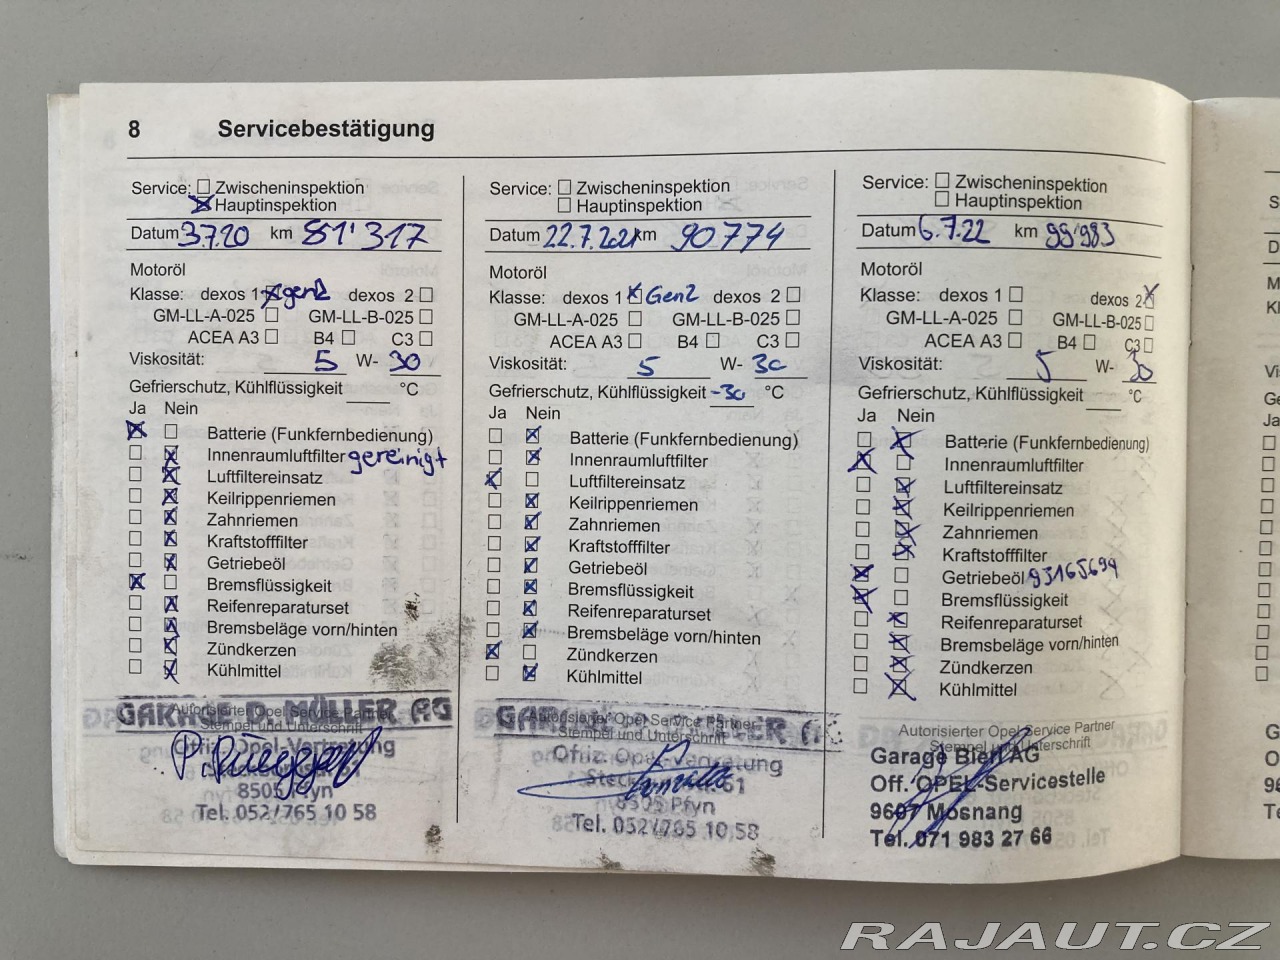 8 Servicebestätigung
Service: Zwischeninspektion
Hauptinspektion
Datum 3.7.20 km 81'317
Motoröl
Klasse: dexos 1 gen2 dexos 2
GM-LL-A-025 GM-LL-B-025
ACEA A3 B4 C3
Viskosität: 5 W- 30
Gefrierschutz, Kühlflüssigkeit °C
Ja Nein
Batterie (Funkfernbedienung)
Innenraumluftfilter gereinigt
Luftfiltereinsatz
Keilrippenriemen
Zahnriemen
Kraftstofffilter
Getriebeöl
Bremsflüssigkeit
Reifenreparaturset
Bremsbeläge vorn/hinten
Zündkerzen
Kühlmittel
Autorisierter Opel Service Partner
Stempel und Unterschrift
GARAGE P. MÜLLER AG
Offiz. Opel-Vertretung
8505 Pfyn
Tel. 052/765 10 58
Service: Zwischeninspektion
Hauptinspektion
Datum 22.7.2021 km 90774
Motoröl
Klasse: dexos 1 Gen2 dexos 2
GM-LL-A-025 GM-LL-B-025
ACEA A3 B4 C3
Viskosität: 5 W- 30
Gefrierschutz, Kühlflüssigkeit -30 °C
Ja Nein
Batterie (Funkfernbedienung)
Innenraumluftfilter
Luftfiltereinsatz
Keilrippenriemen
Zahnriemen
Kraftstofffilter
Getriebeöl
Bremsflüssigkeit
Reifenreparaturset
Bremsbeläge vorn/hinten
Zündkerzen
Kühlmittel
Autorisierter Opel Service Partner
Stempel und Unterschrift
GARAGE P. MÜLLER AG
Offiz. Opel-Vertretung
61
8505 Pfyn
Tel. 052/765 10 58
Service: Zwischeninspektion
Hauptinspektion
Datum 6.7.22 km 99'983
Motoröl
Klasse: dexos 1 dexos 2
GM-LL-A-025 GM-LL-B-025
ACEA A3 B4 C3
Viskosität: 5 W- 30
Gefrierschutz, Kühlflüssigkeit °C
Ja Nein
Batterie (Funkfernbedienung)
Innenraumluftfilter
Luftfiltereinsatz
Keilrippenriemen
Zahnriemen
Kraftstofffilter
Getriebeöl 93165694
Bremsflüssigkeit
Reifenreparaturset
Bremsbeläge vorn/hinten
Zündkerzen
Kühlmittel
Autorisierter Opel Service Partner
Stempel und Unterschrift
Garage Bleiker AG
Off. OPEL-Servicestelle
9607 Mosnang
Tel. 071 983 27 66
RAJAUT.CZ